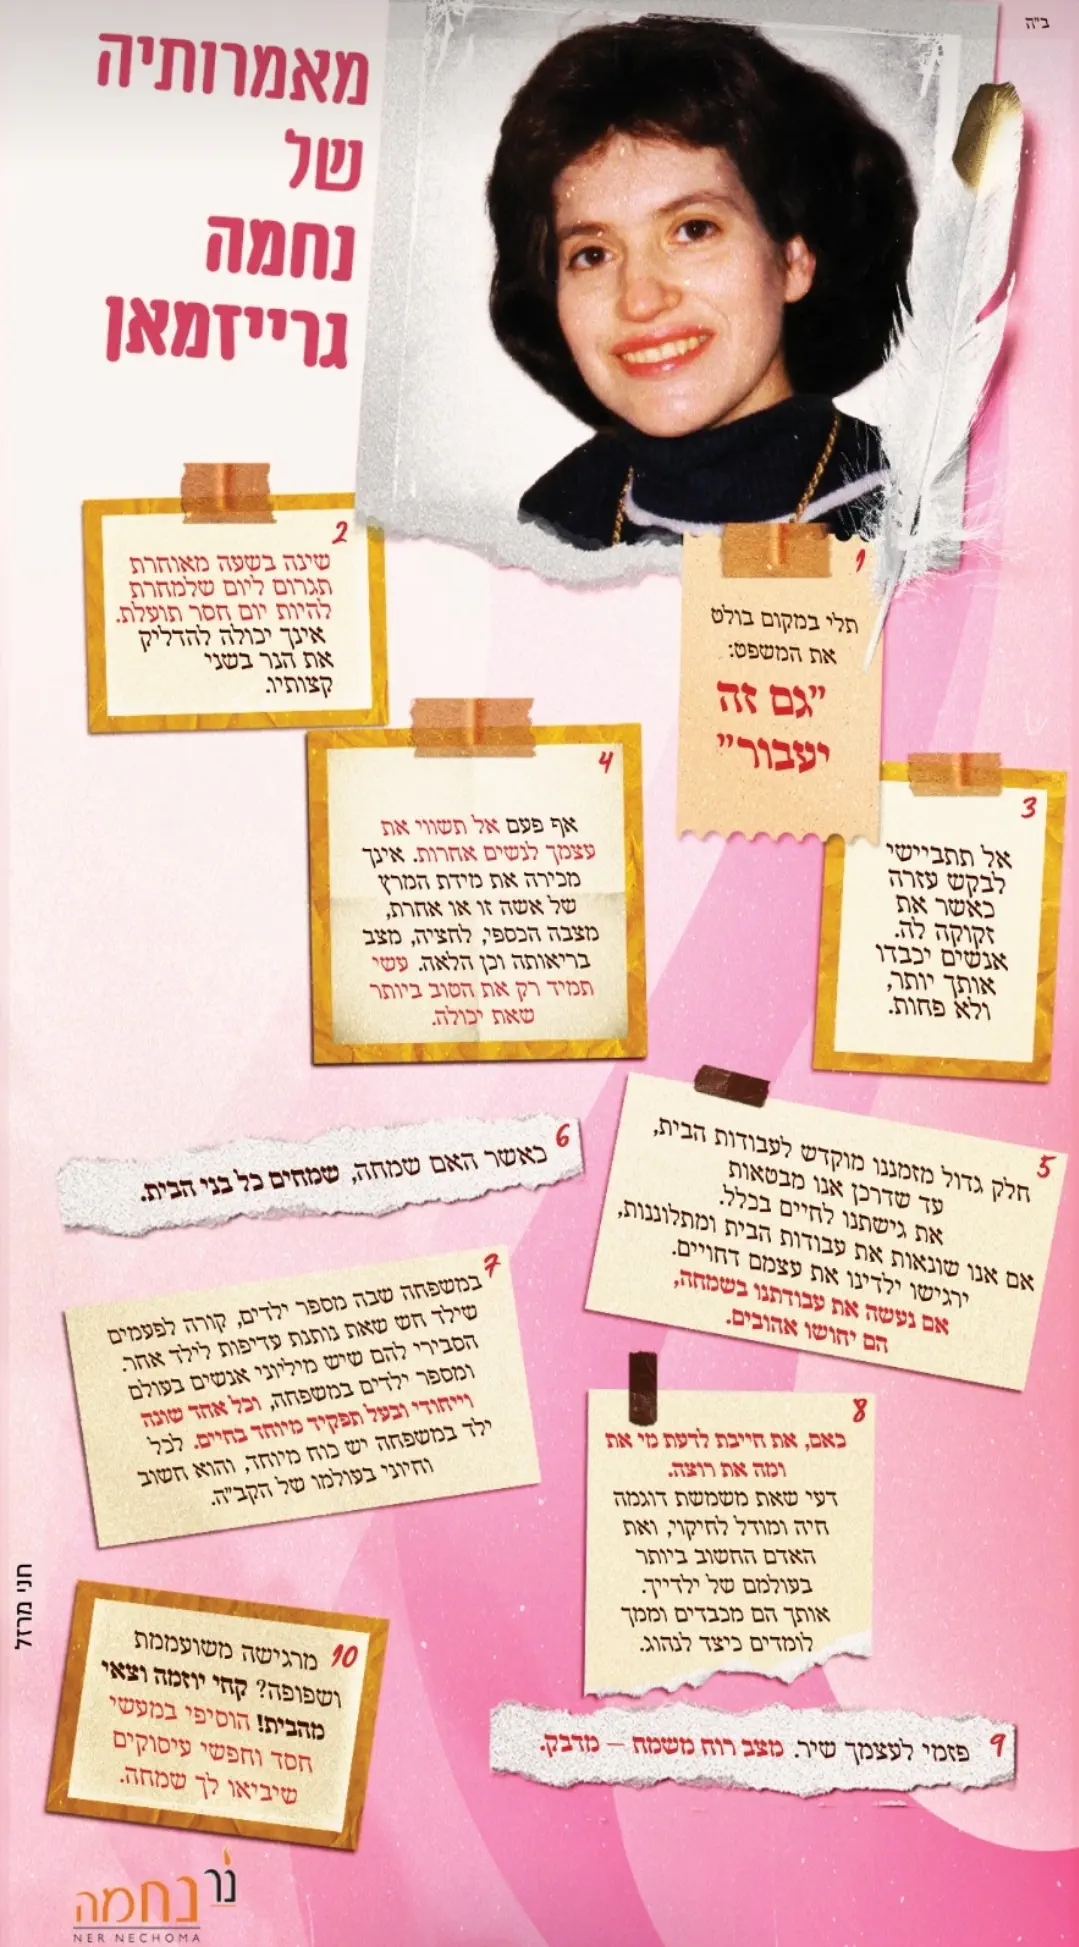 ב"ה
מאמרותיה
של
נחמה
גרייזמאן
1
תלי במקום בולט
את המשפט:
"גם זה
יעבור"
2
שינה בשעה מאוחרת
תגרום ליום שלמחרת
להיות יום חסר תועלת.
אינך יכולה להדליק
את הנר בשני
קצותיו.
3
אל תתביישי
לבקש עזרה
כאשר את
זקוקה לה.
אנשים יכבדו
אותך יותר,
ולא פחות.
4
אף פעם אל תשווי את
עצמך לנשים אחרות. אינך
מכירה את מידת המרץ
של אשה זו או אחרת,
מצבה הכספי, לחציה, מצב
בריאותה וכן הלאה. עשי
תמיד רק את הטוב ביותר
שאת יכולה.
5
חלק גדול מזמננו מוקדש לעבודות הבית,
עד שדרכן אנו מבטאות
את גישתנו לחיים בכלל.
אם אנו שונאות את עבודות הבית ומתלוננות,
ירגישו ילדינו את עצמם דחויים.
אם נעשה את עבודתנו בשמחה,
הם יחושו אהובים.
6 כאשר האם שמחה, שמחים כל בני הבית.
7
במשפחה שבה מספר ילדים, קורה לפעמים
שילד חש שאת נותנת עדיפות לילד אחר.
הסבירי להם שיש מיליוני אנשים בעולם
ומספר ילדים במשפחה, וכל אחד שונה
וייחודי ובעל תפקיד מיוחד בחיים. לכל
ילד במשפחה יש כוח מיוחד, והוא חשוב
וחיוני בעולמו של הקב"ה.
8
כאם, את חייבת לדעת מי את
ומה את רוצה.
דעי שאת משמשת דוגמה
חיה ומודל לחיקוי, ואת
האדם החשוב ביותר
בעולמם של ילדייך.
אותך הם מכבדים וממך
לומדים כיצד לנהוג.
9 פזמי לעצמך שיר. מצב רוח משמח – מדבק.
10 מרגישה משועממת
ושפופה? קחי יוזמה וצאי
מהבית! הוסיפי במעשי
חסד וחפשי עיסוקים
שיביאו לך שמחה.
חני מרזל
נר נחמה
NER NECHOMA